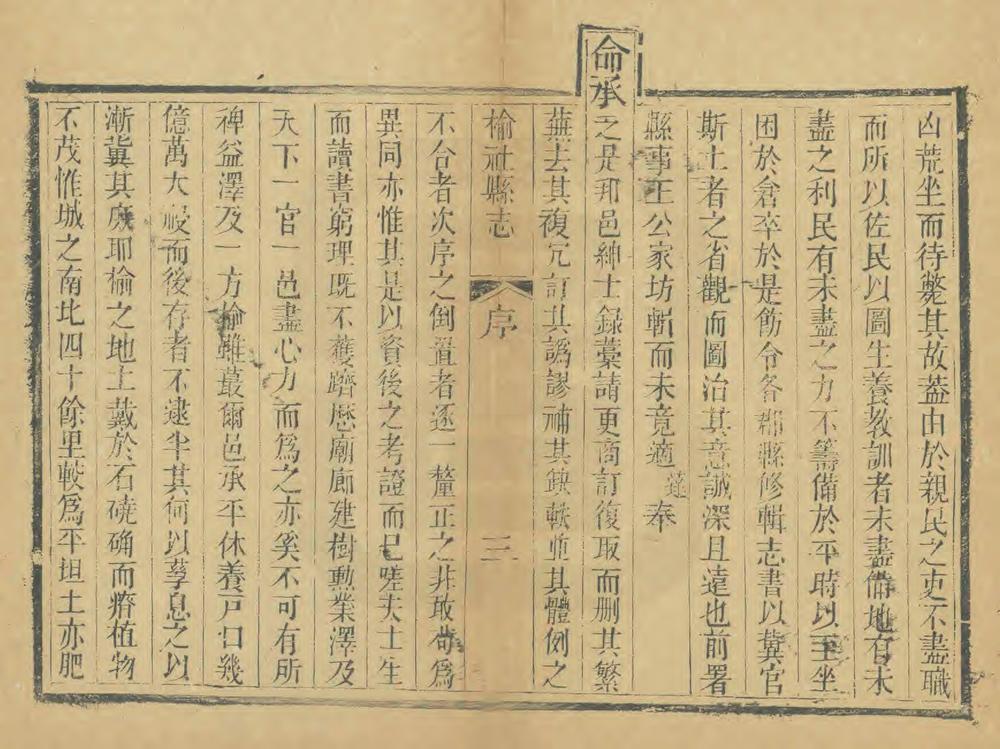 凶荒坐而待斃其故葢由於親民之吏不盡職
而所以佐民以圖生養教訓者未盡備地有未
盡之利民有未盡之力不籌備於平時以至坐
困於倉卒於是飭令各郡縣修輯志書以冀官
斯土者之省觀而圖治其意誠深且遠也前署
縣事王公家坊輯而未竟適 奉
命承之是邦邑紳士録藁請更商訂復取而删其繁
蕪去其複冗訂其譌謬補其缺軼亟其體例之
榆社縣志
序
三
不合者次序之倒置者逐一釐正之非敢苟爲
異同亦惟其是以資後之考證而已嗟夫士生
而讀書窮理既不獲躋歷廟廊建樹勳業澤及
天下一官一邑盡心力而爲之亦奚不可有所
裨益澤及一方榆雖蕞爾邑承平休養戸口幾
億萬大祲而後存者不逮半其何以孳息之以
漸冀其庶耶榆之地土戴於石磽确而瘠植物
不茂惟城之南北四十餘里較爲平坦土亦肥